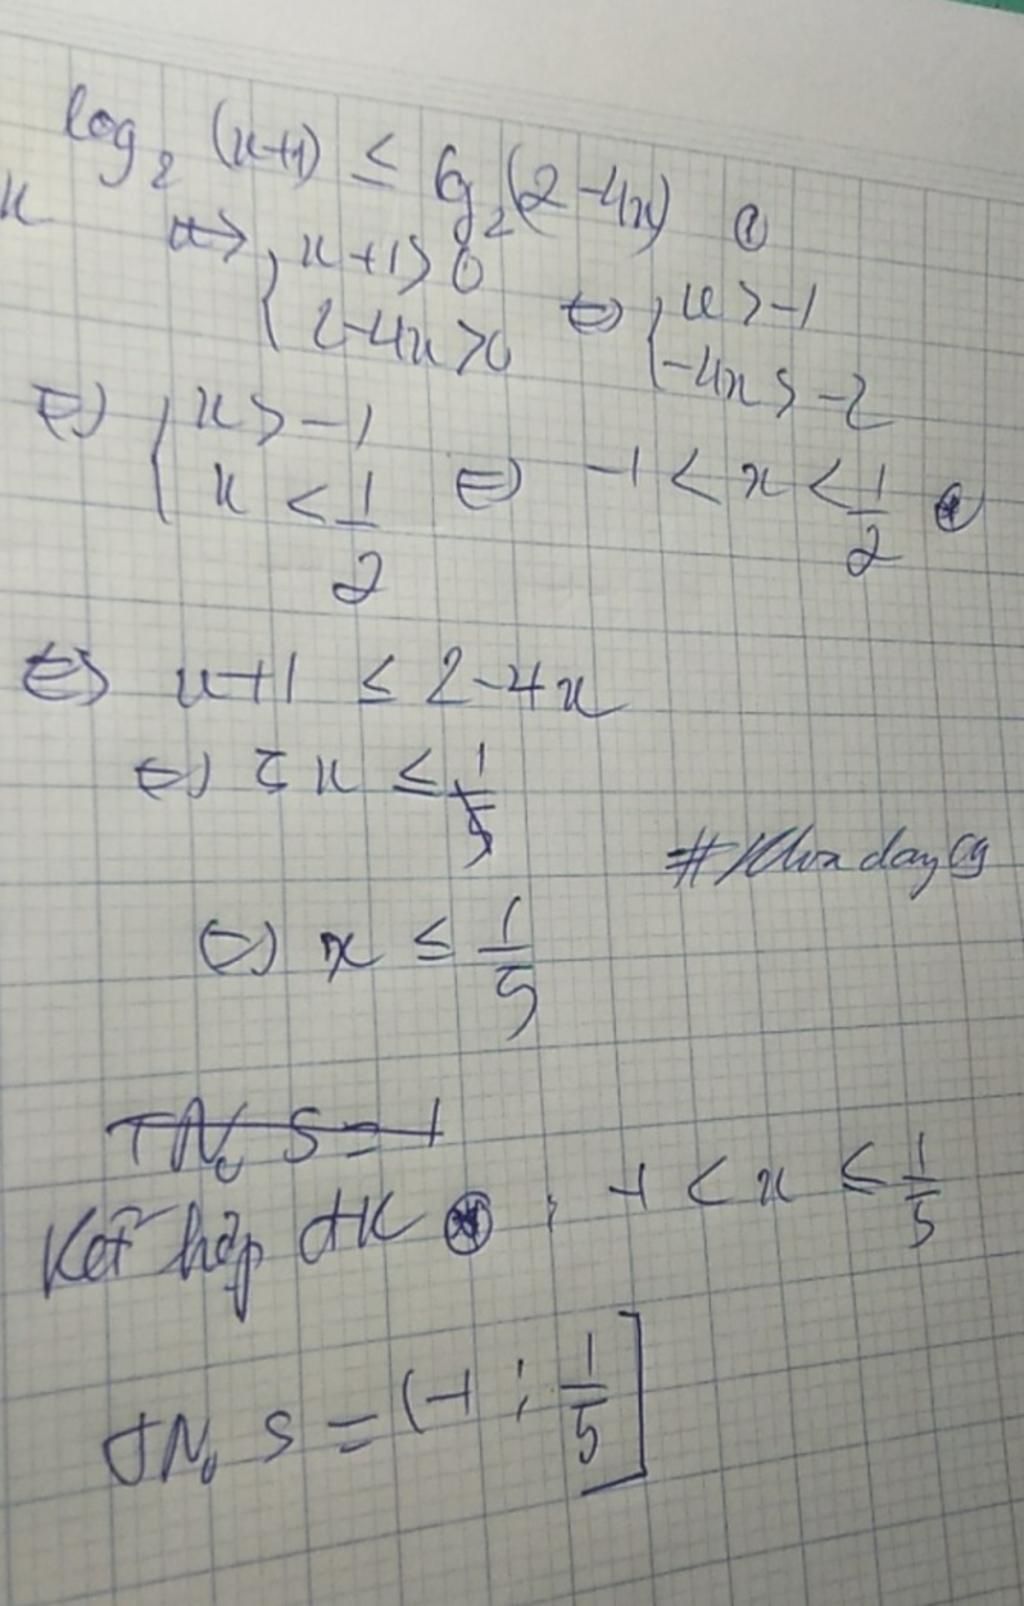 log₂ (x+1) ≤ log₂(2-4x) ①
x
<=> { x+1>0
2-4x>0 <=> { x>-1
-4x>-2
<=> { x>-1
x<1/2 <=> -1<x<1/2 ⊛
<=> x+1 ≤ 2-4x
<=> 5x ≤ 1
<=> x ≤ 1/5
TN₀ S=-1
Kết hợp đK ⊛ : -1<x ≤ 1/5
TN₀ S = (-1 ; 1/5]